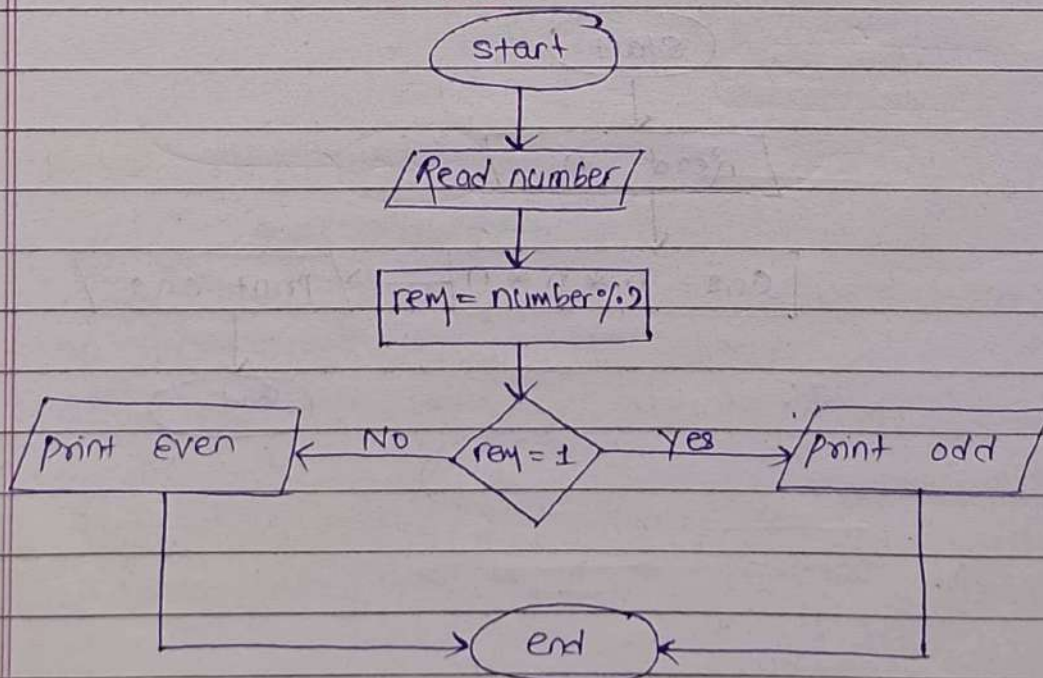 start
Read number
rem = number % 2
print even
No
rem = 1
Yes
print odd
end